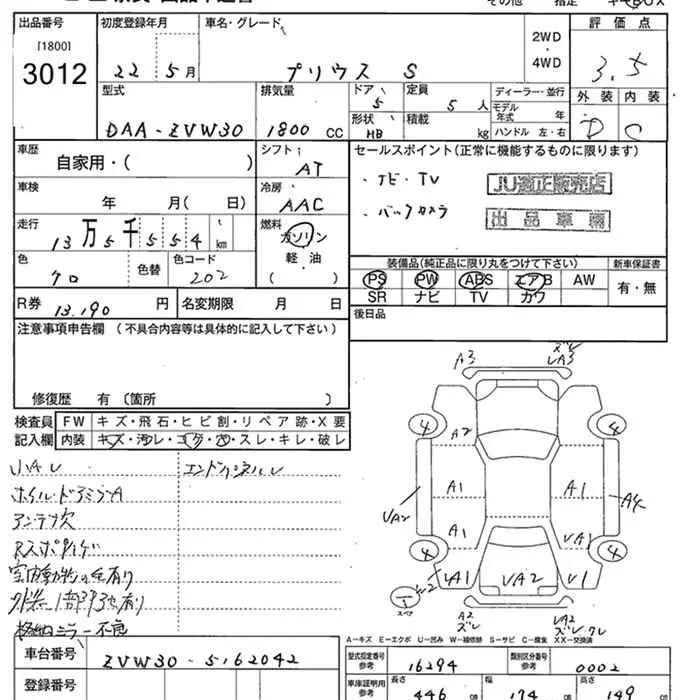 その他 指定 キーBOX
出品番号 初度登録年月 車名・グレード 評価点
[1800]
3012
22 5月 プリウス S
2WD
・
4WD
3.5
型式 排気量 ドア 定員 ディーラー・並行 外装 内装
DAA-ZVW30 1800 CC 5 5人
形状 HB 積載 kg
モデル年式 年
ハンドル 左・右
D C
車歴 自家用・( )
シフト AT
セールスポイント(正常に機能するものに限ります)
・ナビ・TV
・バックカメラ
JU適正販売店
出品車輌
車検 年 月( 日)
冷房 AAC
走行 13万5千554 km
燃料 ガソリン
軽・油
( )
色 クロ 色替 色コード 202
装備品(純正品に限り丸をつけて下さい) 新車保証書
PS PW ABS エアB AW
SR ナビ TV カワ
有・無
R券 13.190 円 名変期限 月 日
後日品
注意事項申告欄 (不具合内容等は具体的に記入して下さい)
修復歴 有 〔箇所 〕
検査員記入欄
FW キズ・飛石・ヒビ割・リペア跡・X要
内装 キズ・汚レ・コゲ・穴・スレ・キレ・破レ
アンテナ欠
室内動物の毛有り
格納ミラー不良
A3 ズレ UA3
4 4
A2
A1 A1
UA2 A4
A1 UA1
4 4
UA1 UA2 U1
A2
ズレ
UA2
A-キズ E-エクボ U-凹み W-補修跡 S-サビ C-腐食 XX-交換済
車台番号 ZVW30-5162042
登録番号
型式指定番号 参考 16294
類別区分番号 参考 0002
車庫証明用 参考
長さ 446 cm 幅 174 cm 高さ 149 cm